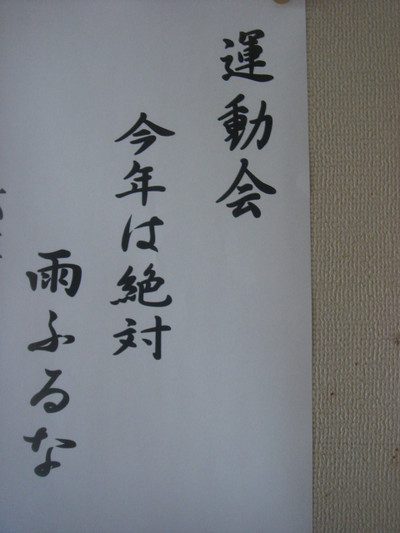 運動会
今年は絶対
雨ふるな